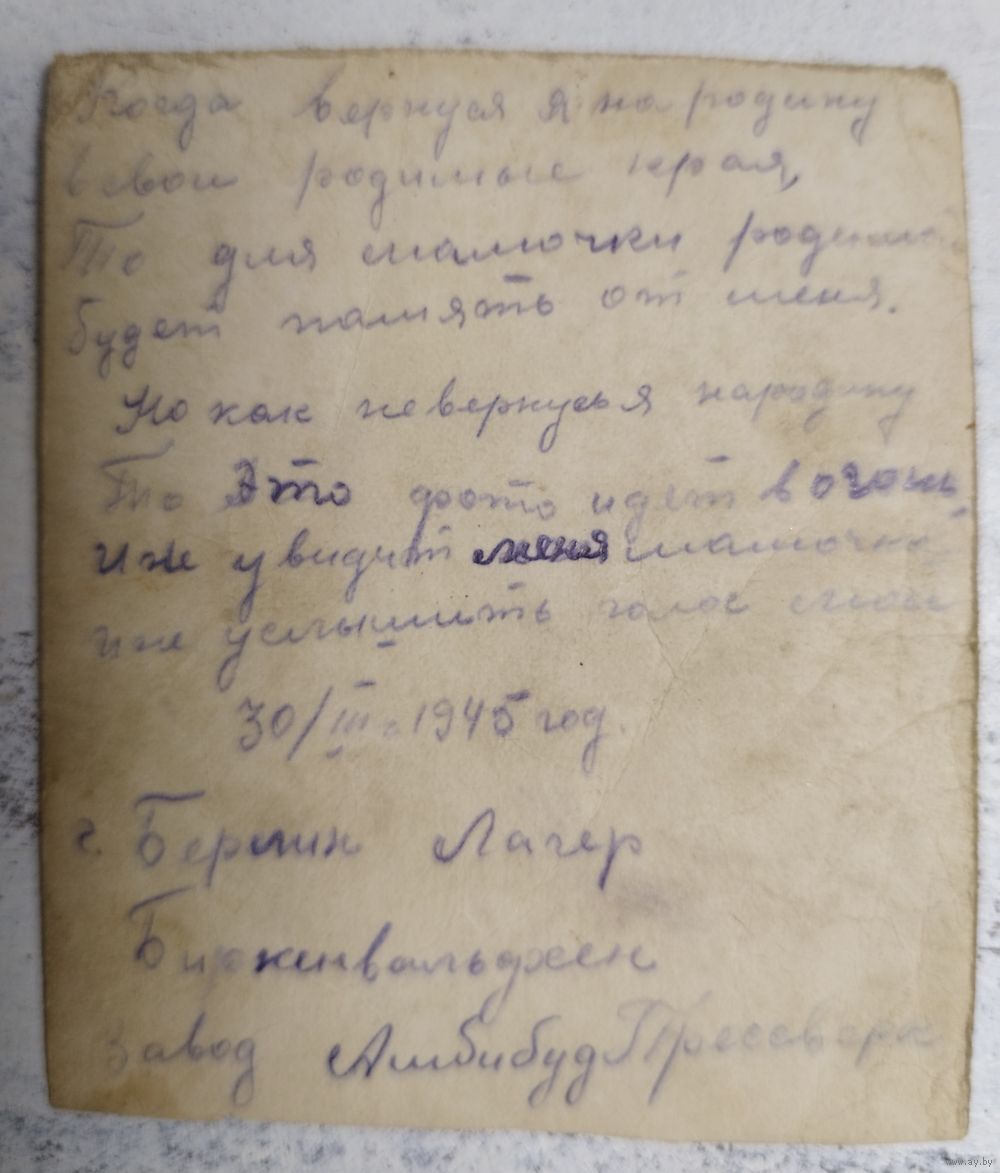 Когда вернуся я на родину
в свои родимые края,
То для мамочки родимой
будет память от меня.
Но как невернусья народину
То Это фото идет вогонь,
и не увидит меня мамочка
и не услышить голос мой
30/III-1945 год.
г. Берлин Лагер
Биркенвальдхен
завод АмбибудПрессверк
www.ay.by